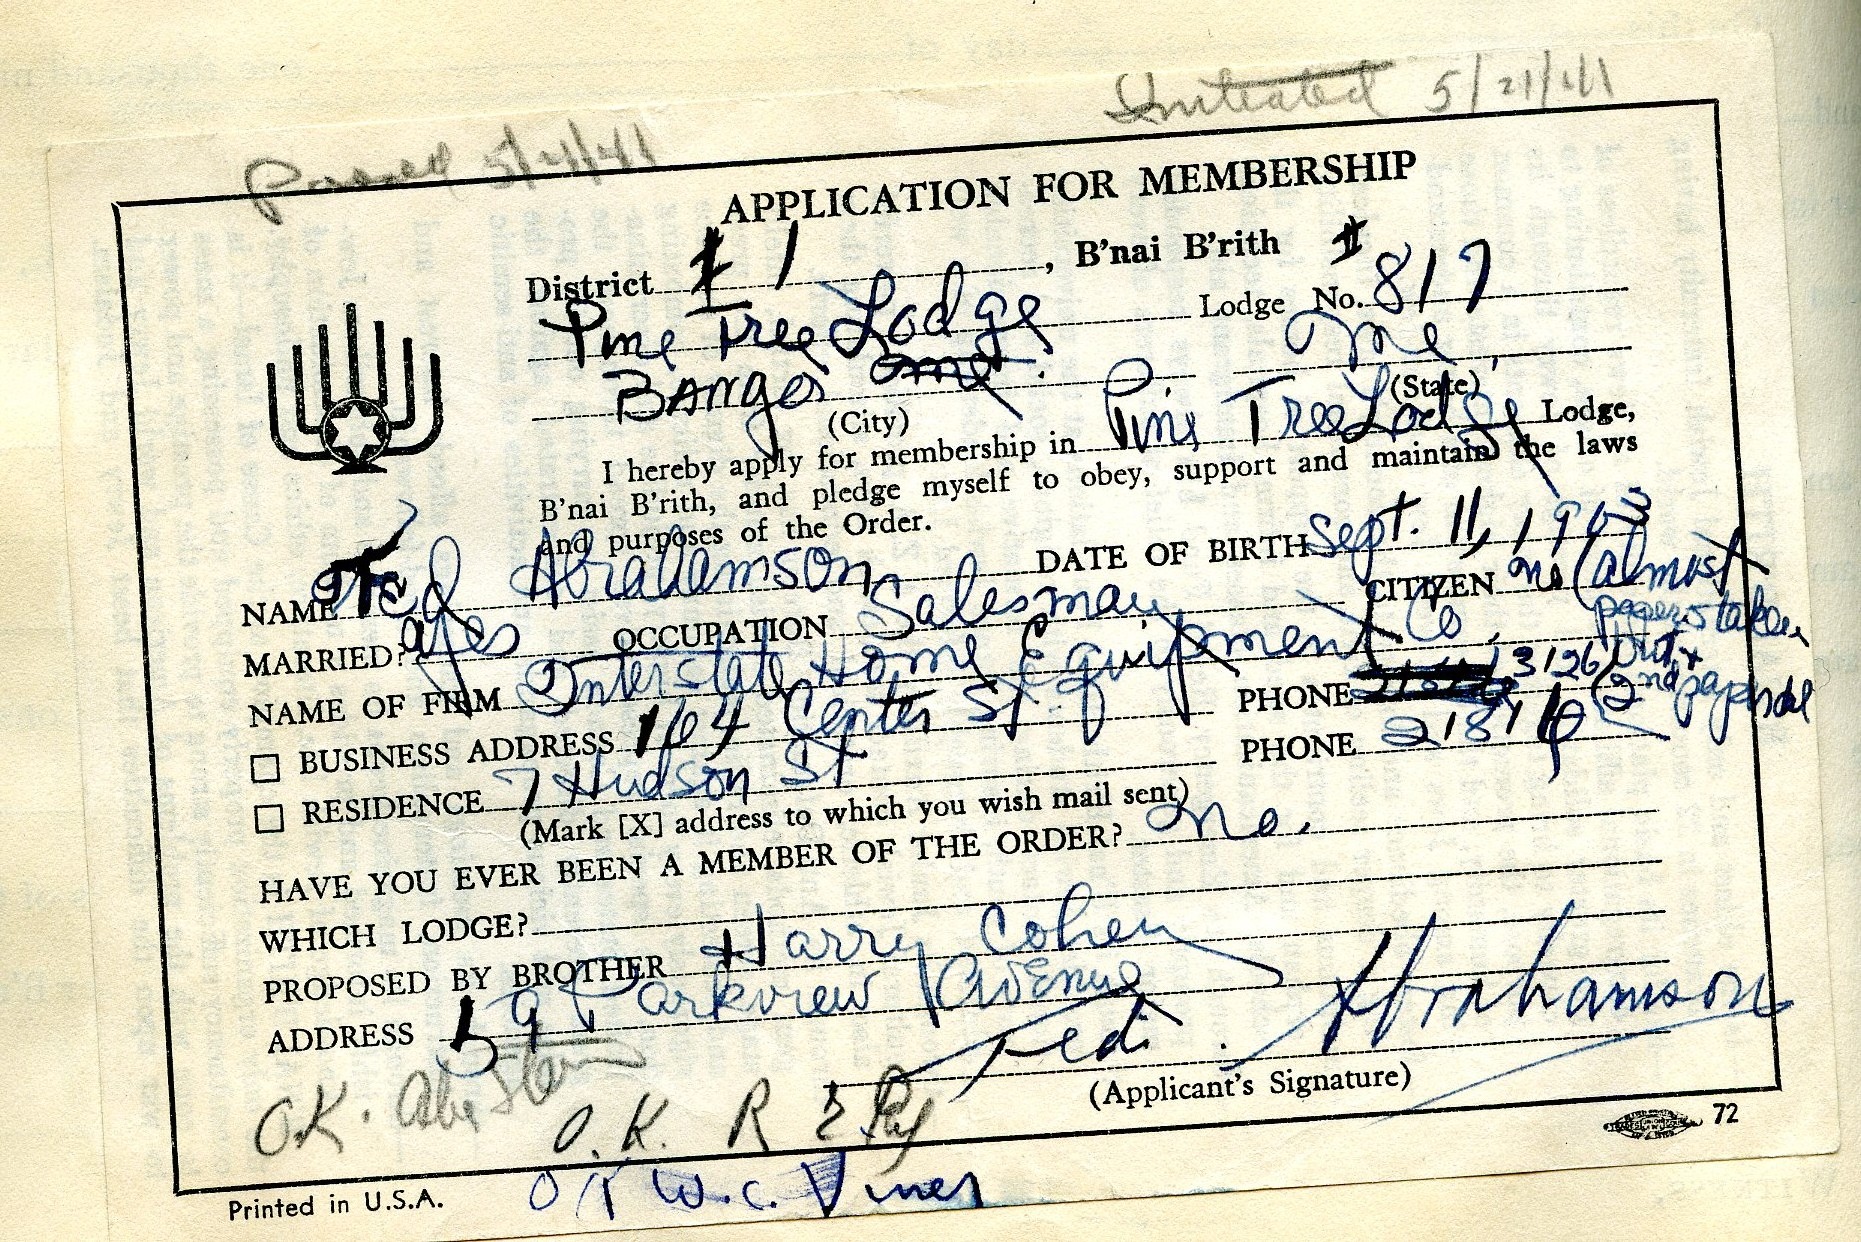 Initeated 5/21/41
Passed 5/21/41
APPLICATION FOR MEMBERSHIP
District # 1, B'nai B'rith #
Pine Tree Lodge Lodge No. 817
Bangor Me. Me.
(City) (State)
I hereby apply for membership in Pine Tree Lodge Lodge,
B'nai B'rith, and pledge myself to obey, support and maintain the laws
and purposes of the Order.
NAME Ted Abrahamson DATE OF BIRTH Sept. 11, 1903
MARRIED? yes OCCUPATION Salesman CITIZEN no (almost
papers taken
out +
2nd papers
NAME OF FIRM Interstate Home Equipment Co. PHONE 3126
BUSINESS ADDRESS 164 Center St. PHONE
RESIDENCE 7 Hudson St
(Mark [X] address to which you wish mail sent)
HAVE YOU EVER BEEN A MEMBER OF THE ORDER? no.
WHICH LODGE?
PROPOSED BY BROTHER Harry Cohen
ADDRESS 59 Parkview Avenue
Ted. Abrahamson
(Applicant's Signature)
O.K. Abe Stern O.K. R
72
Printed in U.S.A. OK W.C. Viner